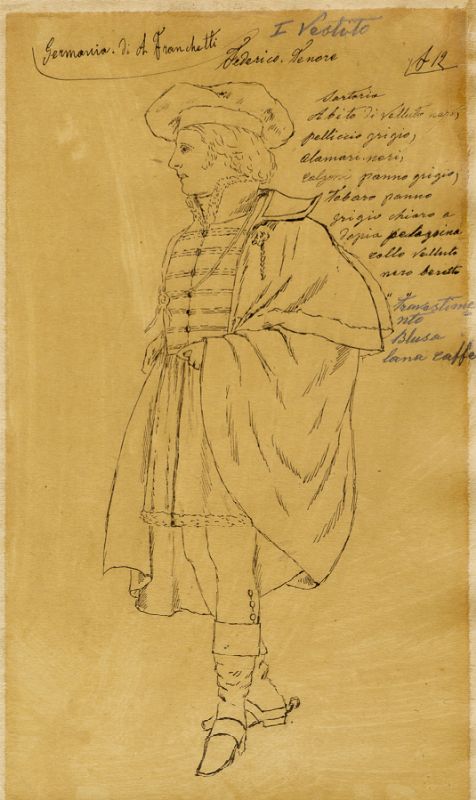 I Vestito
Germania. di A. Franchetti
Federico. Tenore
A 12
Sartoria
Abito di Velluto nero,
pelliccio grigio,
alamari. neri,
calzoni panno grigio,
Tabaro panno
grigio chiaro a
dopia pelegrina
collo velluto
nero beretto
"Travestime
nto
Blusa
lana caffe